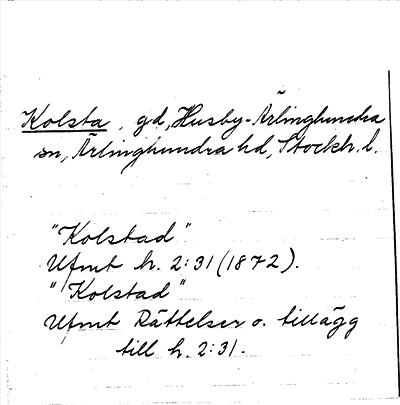 Kolsta, gd, Husby-Ärlinghundra
sn, Ärlinghundra hd, Stockh. l.
"Kolstad"
Ufmt h. 2:31 (1872).
"Kolstad"
Ufmt Rättelser o. tillägg
till h. 2:31.